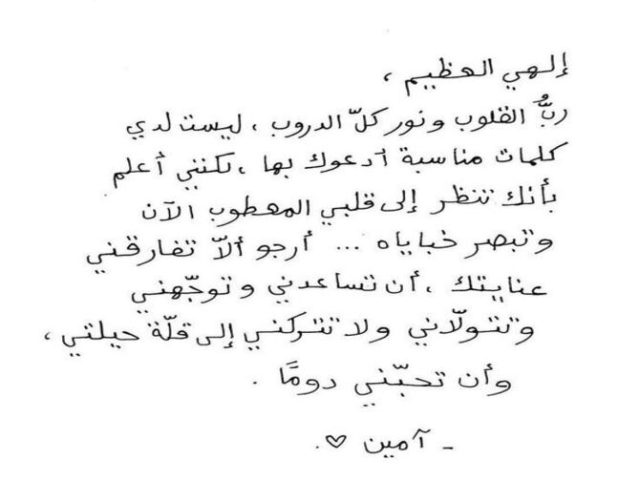 إلهي العظيم ،
ربُّ القلوب ونور كلّ الدروب ، ليست لدي
كلمات مناسبة أدعوك بها ، لكنني أعلم
بأنك تنظر إلى قلبي المعطوب الآن
وتبصر خباياه ... أرجو ألّا تفارقني
عنايتك ، أن تساعدني وتوجّهني
وتتولّاني ولا تتركني إلى قلّة حيلتي ،
وأن تحبّني دومًا .
- آمين ♡.